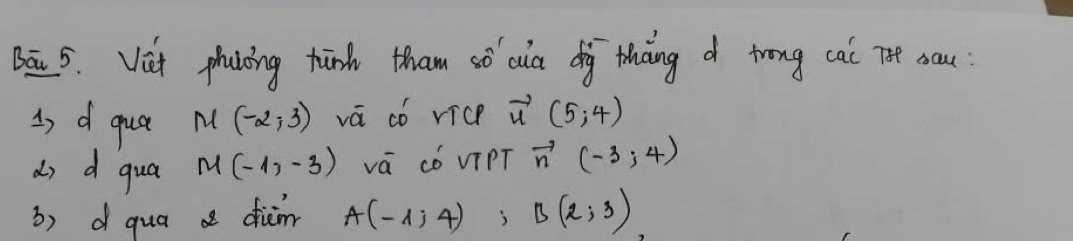 Bài 5. Viết phương trình tham số của đg thẳng d trong các TH sau:
1, d qua M (-2;3) và có VTCP u⃗ (5;4)
2, d qua M(-1;-3) và có VTPT n⃗ (-3;4)
3, d qua 2 điểm A(-1;4) ; B(2;3)